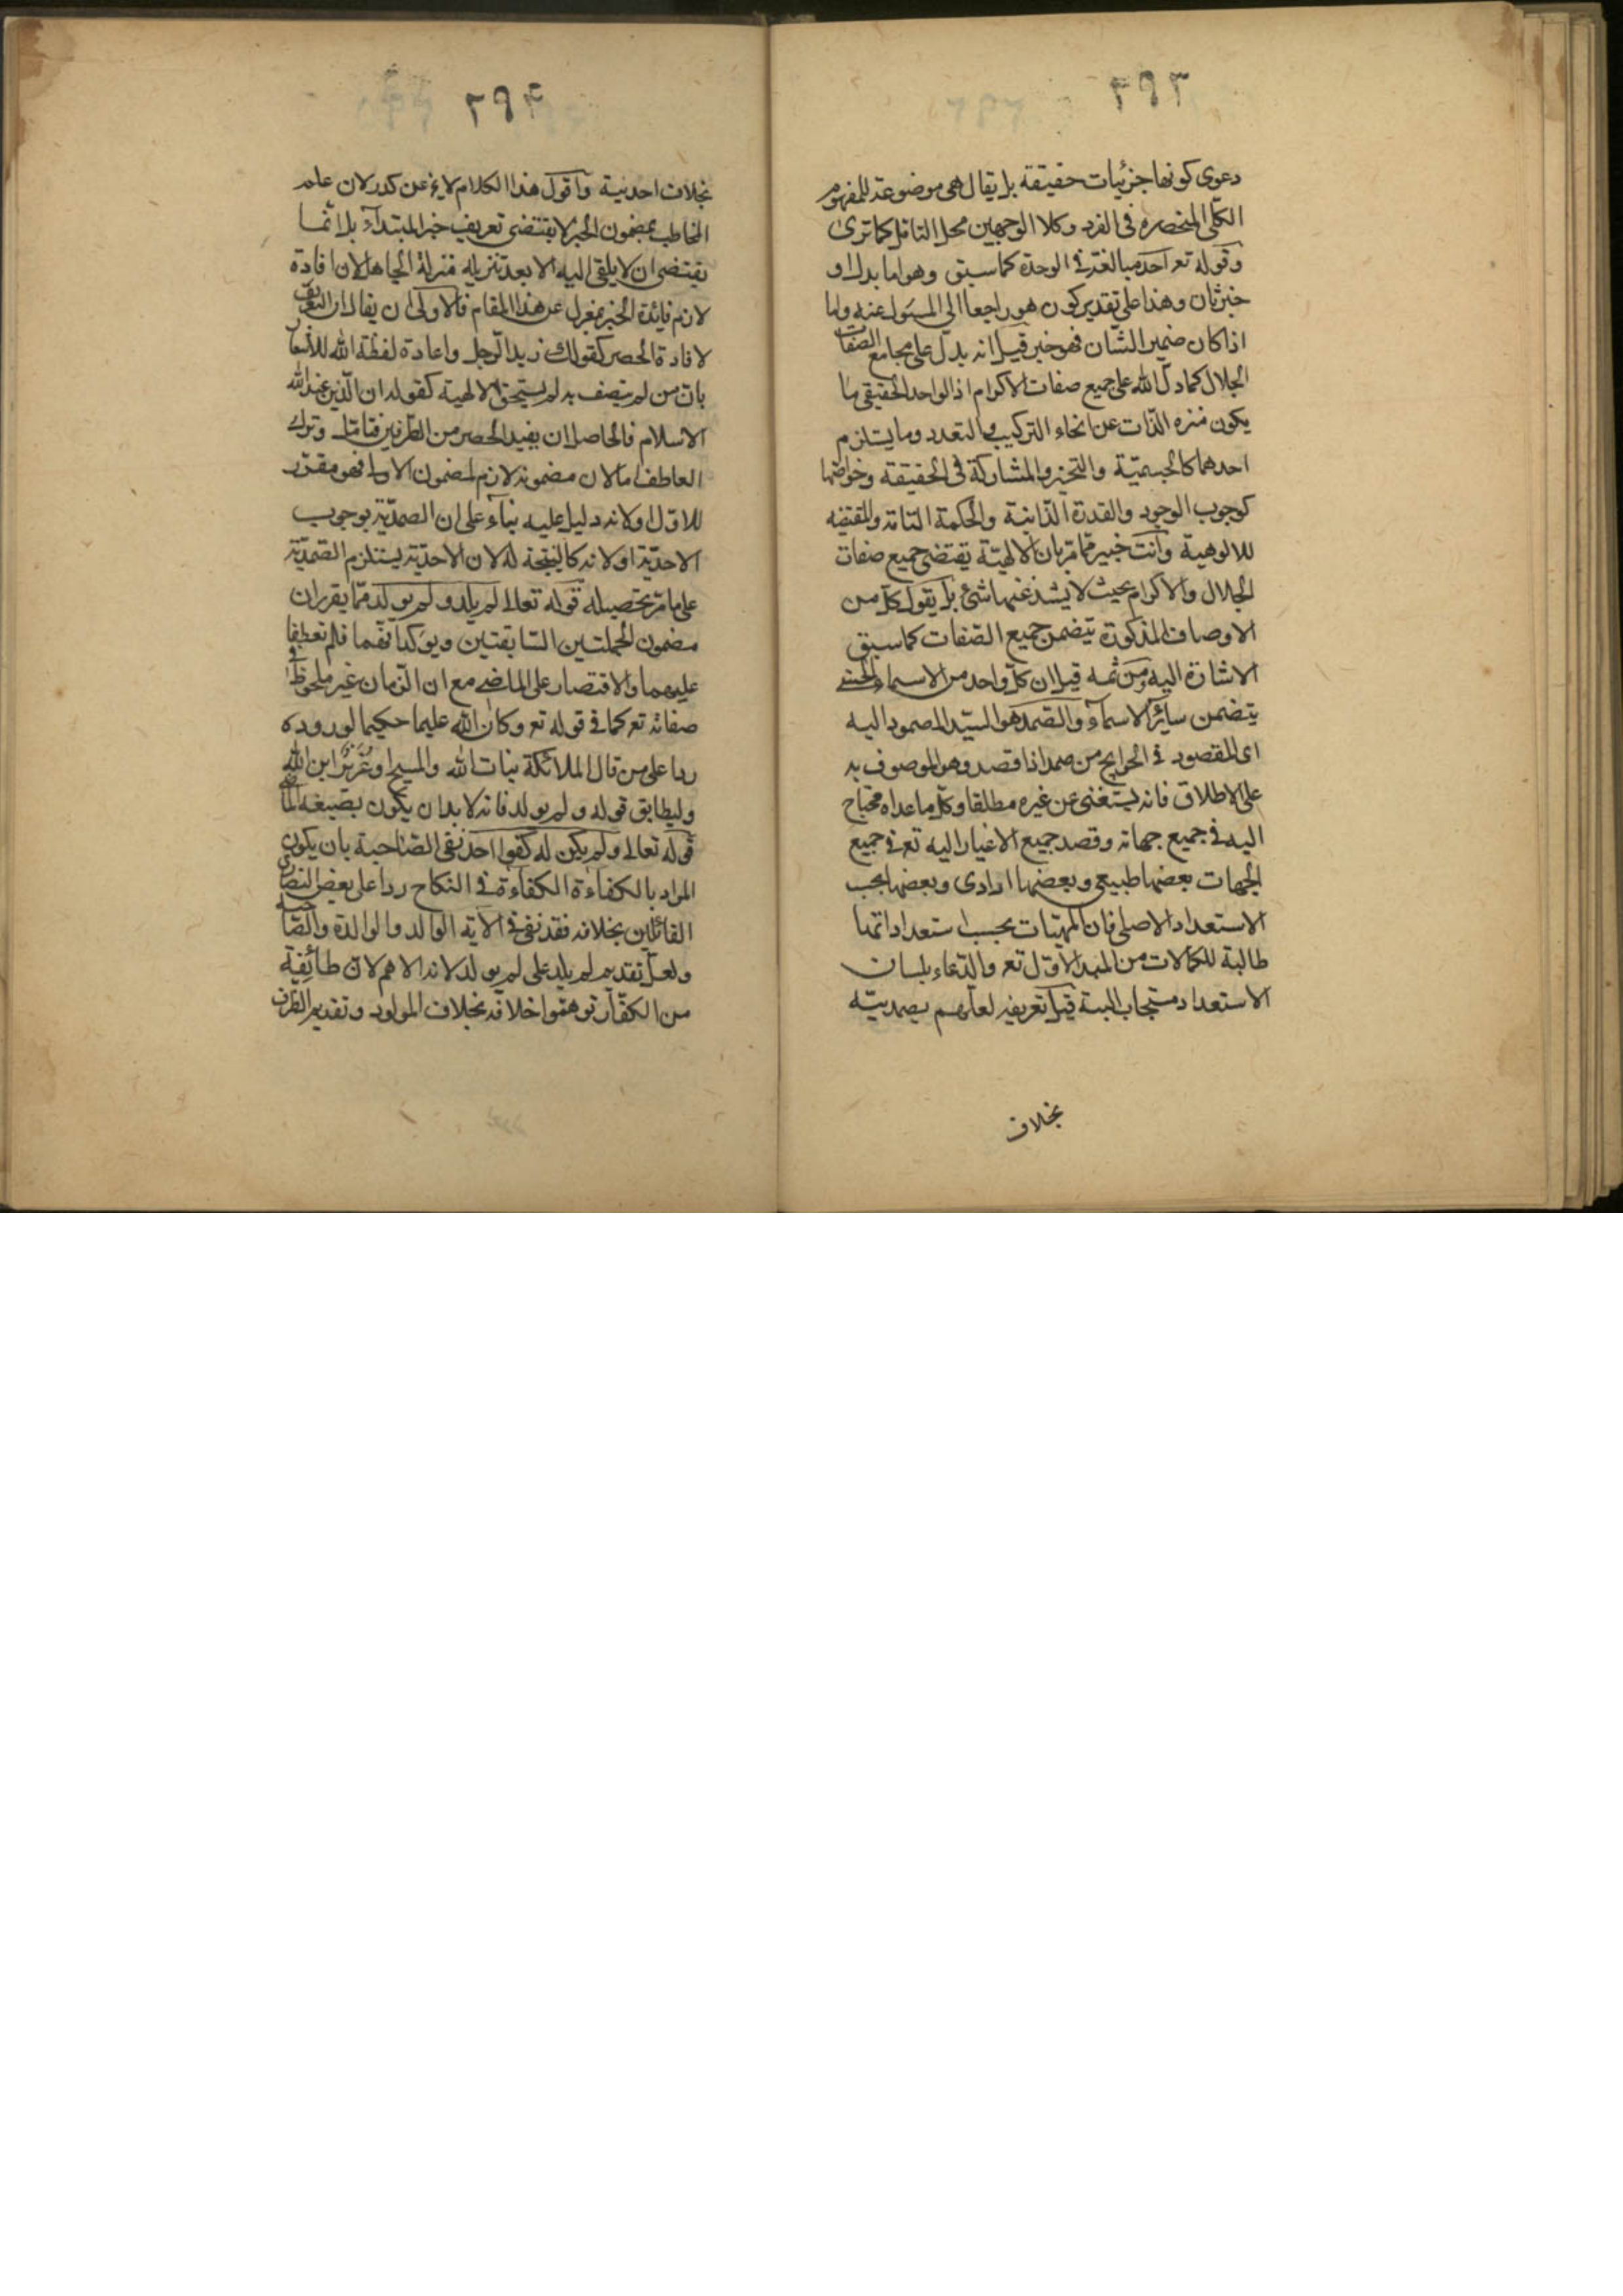 ٢٩٣
دعوى كونها جزئيات حقيقة بل يقال هى موضوعة للمفهوم
الكلّى المنحصره فى الفرد وكلا الوجهين محل التامل كما ترى
وقوله تع احد مبالغة فى الوحدة كما سبق وهو اما بدل او
خبر ثان وهذا على تقدير كون هو راجعا الى المسئول عنه واما
اذا كان ضمير الشّان فهو خبر قيل انه يدلّ على مجامع الصفات
الجلال كما دلّ الله على جميع صفات الاكرام اذ الواحد الحقيقى ما
يكون منزه الذّات عن انحاء التركيب والتعدد وما يستلزم
احدهما كالجسميّة والتحيز والمشاركة فى الحقيقة وخواصّها
كوجوب الوجود والقدرة الذّاتية والحكمة التامّة والمقتضيه
للالوهية وانت خبير ممّا مرّ بان الالهيّة يقتضى جميع صفات
الجلال والاكرام بحيث لا يشذ عنها شئ بل يقول كلّ من
الاوصاف المذكورة يتضمن جميع الصّفات كما سبق
الاشارة اليه ومن ثمه قيل ان كلّ واحد من الاسماء الحسنى
يتضمن سائر الاسماء والصّمد هو السيّد المصمود اليه
اى المقصود فى الحوايج من صمد اذا قصد وهو الموصوف به
على الاطلاق فانه يستغنى عن غيره مطلقا وكلّ ما عداه محتاج
اليه فى جميع جهاته وقصد جميع الاغيار اليه تع فى جميع
الجهات بعضها طبيعى وبعضها ارادى وبعضها بحسب
الاستعداد الاصلى فان المهيّات بحسب استعداداتها
طالبة للكمالات من المبدا الاوّل تع والدّعاء بلسان
الاستعداد مستجاب البتة قيل تعريفه لعلمهم بصمديّته
بخلاف
٢٩٤
بخلاف احديته واقول هذا الكلام لا يخ عن كدر لان علم
المخاطب بمضمون الخبر لا يقتضى تعريف خبر المبتداء بل انّما
يقتضى ان لا يلقى اليه الا بعد تنزيله منزلة الجاهل لان افادة
لازم فائدة الخبر بمعزل عن هذا المقام فالاولى ان يقال ان التعريف
لافادة الحصر كقولك زيد الرّجل واعادة لفظة الله للاشعار
بان من لم يتصف به لم يستحق الالهية كقوله ان الدّين عند الله
الاسلام فالحاصل ان يفيد الحصر من الطّرفين فتامّل وترك
العاطف اما لان مضمونه لازم لمضمون الاول فهو مقرّر
للاوّل او لانه دليل عليه بناء على ان الصمديّة يوجب
الاحديّة او لانه كالنتيجة له لان الاحديّة يستلزم الصّمديّة
على ما مرّ تحصيله قوله تعالى لم يلد ولم يولد ممّا يقرران
مضمون الجملتين السّابقتين ويؤكدانهما فلم تعطفا
عليهما والاقتصار على الماضى مع ان الزّمان غير ملحوظ فى
صفاته تع كما فى قوله تع وكان الله عليما حكيما لوروده
ردا على من قال الملائكة بنات الله والمسيح او عزير ابن الله
وليطابق قوله ولم يولد فانه لا بد ان يكون بصيغه الماضى
قوله تعالى ولم يكن له كفوا احد نفى الصّاحبة بان يكون
المراد بالكفاءة الكفاءة فى النكاح ردا على بعض النصارى
القائلين بخلافه فقد نفى فى الآية الوالد والوالدة والصّاحبه
ولعلّ تقديم لم يلد على لم يولد لانه الاهم لان طائفة
من الكفّار توهّموا خلافه بخلاف المولود وتقديم الظرف